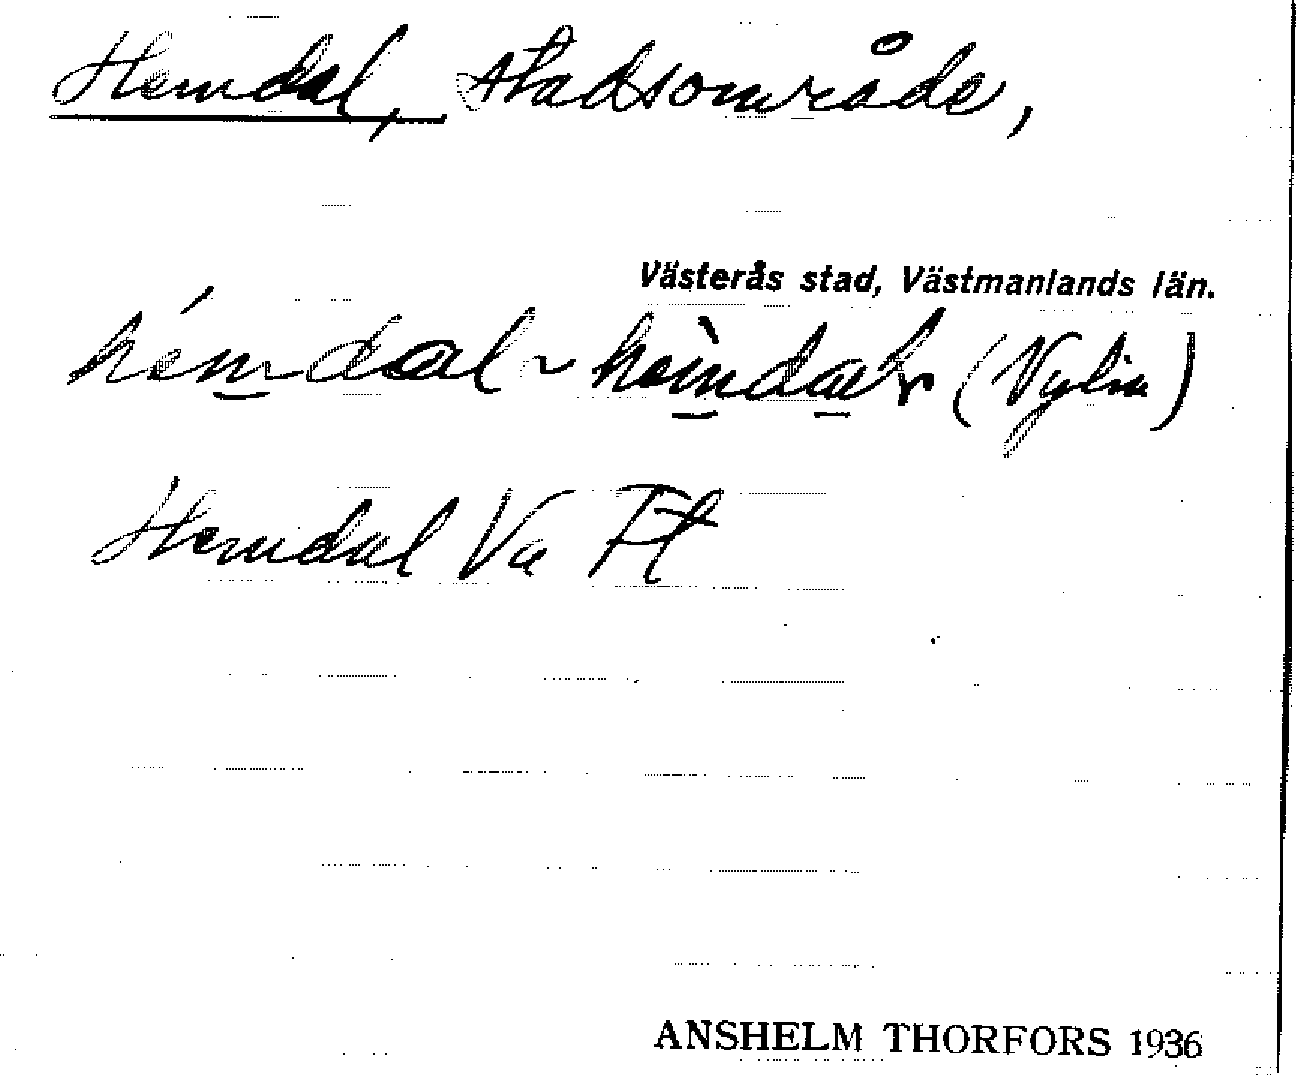 Hemdal, stadsområde,
Västerås stad, Västmanlands län.
hémdal ~ hèmdal (Nylin)
Hemdal Va Ft
ANSHELM THORFORS 1936